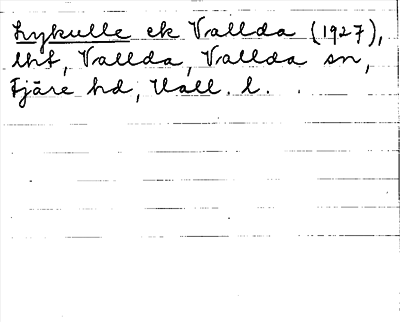 Lykulle ek Vallda (1927),
lhf, Vallda, Vallda sn,
Fjäre hd, Hall. l.